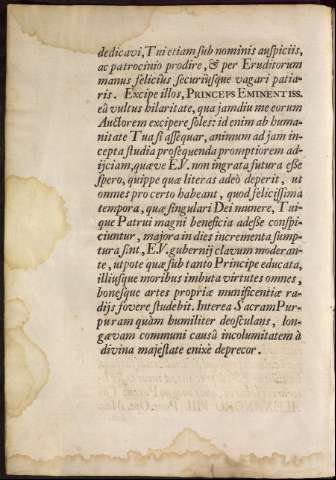 dedicavi, Tui etiam sub nominis auspiciis,
ac patrocinio prodire, & per Eruditorum
manus feliciùs securiùsque vagari patia-
ris. Excipe illos, PRINCEPS EMINENTISS.
eâ vultus hilaritate, qua jamdiu me eorum
Auctorem excipere soles: id enim ab huma-
nitate Tua si assequar, animum ad jam in-
cepta studia prosequenda promptiorem ad-
ijciam, quæve E.V. non ingrata futura esse
spero, quippe quæ literas adeò deperit, ut
omnes pro certo habeant, quod felicissima
tempora, quæ singulari Dei munere, Tui-
que Patrui magni beneficia adesse conspi-
ciuntur, majora in dies incrementa sump-
tura sint, E.V. gubernij clavum moderan-
te, utpote quæ sub tanto Principe educata,
illiusque moribus imbuta virtutes omnes,
bonesque artes propriæ munificentiæ ra-
dijs fovere studebit. Interea Sacram Pur-
puram quàm humiliter deosculans, lon-
gævam communi causâ incolumitatem à
divina majestate enixè deprecor.